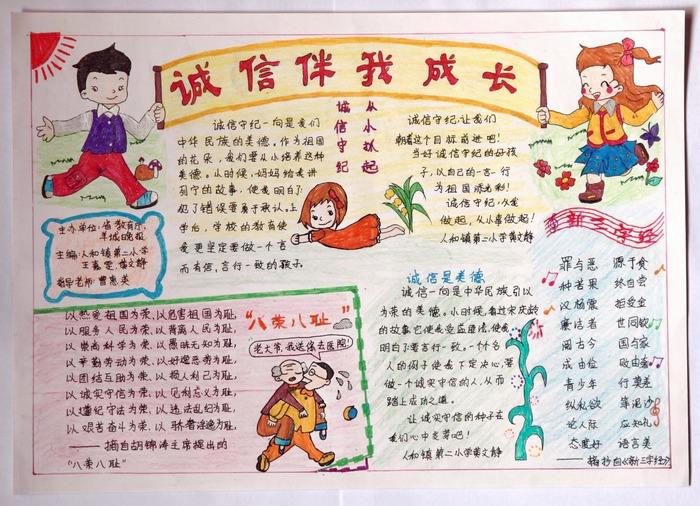 诚信伴我成长
从小做起
诚信守纪
诚信守纪一向是我们
中华民族的美德。作为祖国
的花朵，我们要从小培养这种
美德。从小时候，妈妈给我讲
列宁的故事，使我明白了
犯了错误要勇于承认。上
学后，学校的教育使
我更坚定要做一个言
而有信，言行一致的孩子。
诚信守纪，让我们
朝着这个目标前进吧！
当好诚信守纪的好孩
子，以自己的一言一行
为祖国添光彩！
诚信守纪，从我
做起，从小事做起！
人和镇第二小学黄文静
主办单位：省教育厅、
羊城晚报
主编：人和镇第二小学
黄文静
指导老师：曹惠英
诚信是美德
诚信一向是中华民族引以
为荣的美德。小时候，看过宋庆龄
的故事，它使我受益匪浅，使我
明白了要言行一致。一个个名
人的例子使我下定决心，要
做一个诚实守信的人，从而
踏上成功之道。
让诚实守信的种子在
我们心中发芽吧！
人和镇第二小学黄文静
新三字经
罪与恶 源于贪
种苦果 终自尝
汉杨震 拒受金
廉洁者 世同钦
阅古今 国与家
成由俭 败由奢
青少年 行莫差
纵私欲
论人际 应知礼
态度好 语言美
——摘抄自《新三字经》
"八荣八耻"
老大爷，我送你去医院！
以热爱祖国为荣、以危害祖国为耻，
以服务人民为荣、以背离人民为耻，
以崇尚科学为荣、以愚昧无知为耻，
以辛勤劳动为荣、以好逸恶劳为耻，
以团结互助为荣、以损人利己为耻，
以诚实守信为荣、以见利忘义为耻，
以遵纪守法为荣、以违法乱纪为耻，
以艰苦奋斗为荣、以骄奢淫逸为耻。
——摘自胡锦涛主席提出的
"八荣八耻"